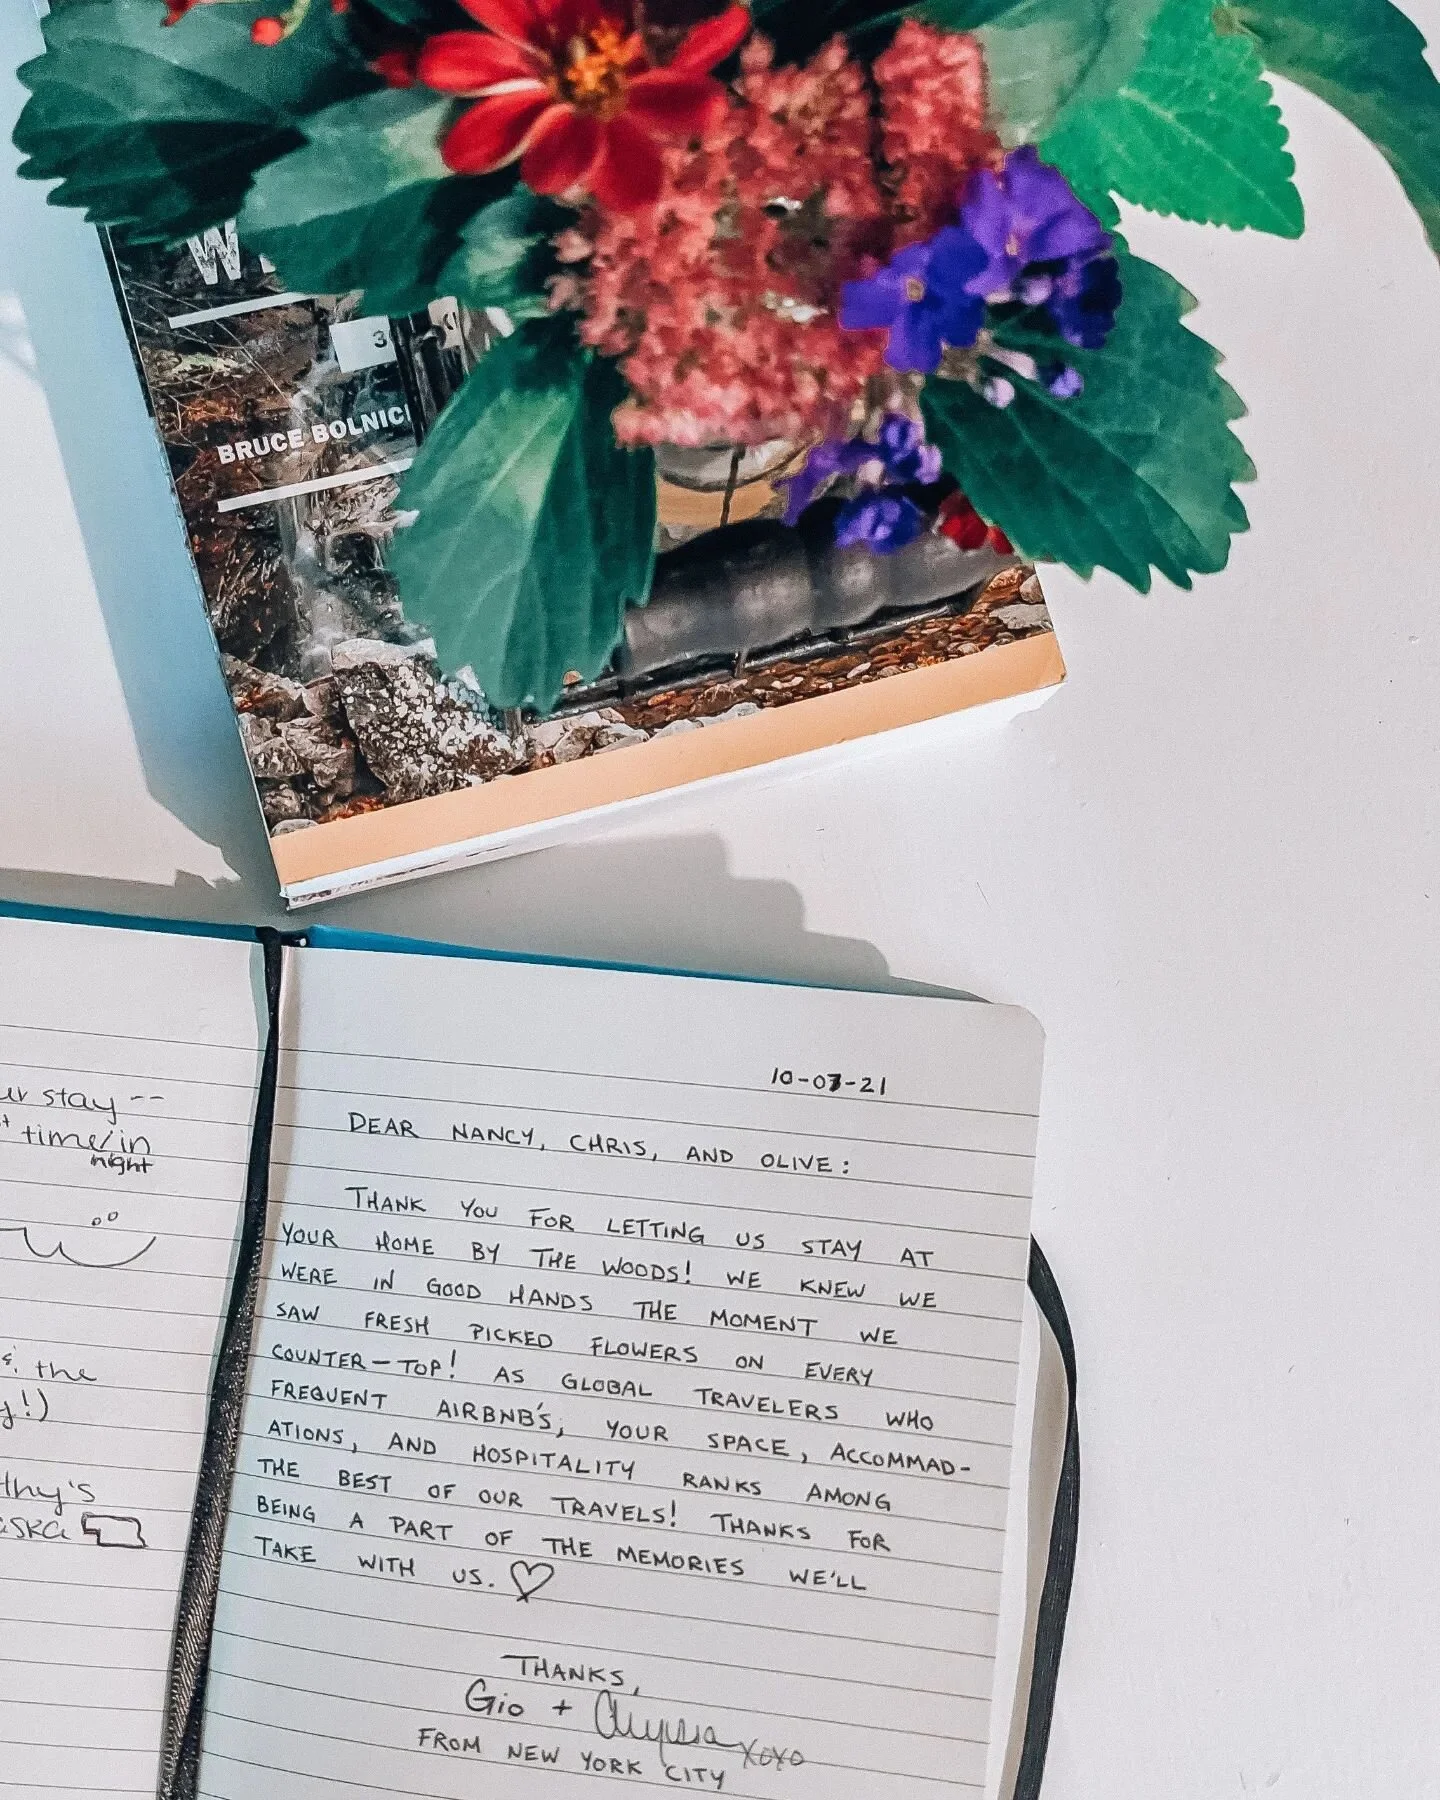 W
3
BRUCE BOLNIC
ur stay --
time/in
night
& the
y!)
thy's
aska
10-07-21
DEAR NANCY, CHRIS, AND OLIVE:
THANK YOU FOR LETTING US STAY AT
YOUR HOME BY THE WOODS! WE KNEW WE
WERE IN GOOD HANDS THE MOMENT WE
SAW FRESH PICKED FLOWERS ON EVERY
COUNTER-TOP! AS GLOBAL TRAVELERS WHO
FREQUENT AIRBNB'S, YOUR SPACE, ACCOMMAD-
ATIONS, AND HOSPITALITY RANKS AMONG
THE BEST OF OUR TRAVELS! THANKS FOR
BEING A PART OF THE MEMORIES WE'LL
TAKE WITH US. ♡
THANKS,
Gio + Alyssa xoxo
FROM NEW YORK CITY